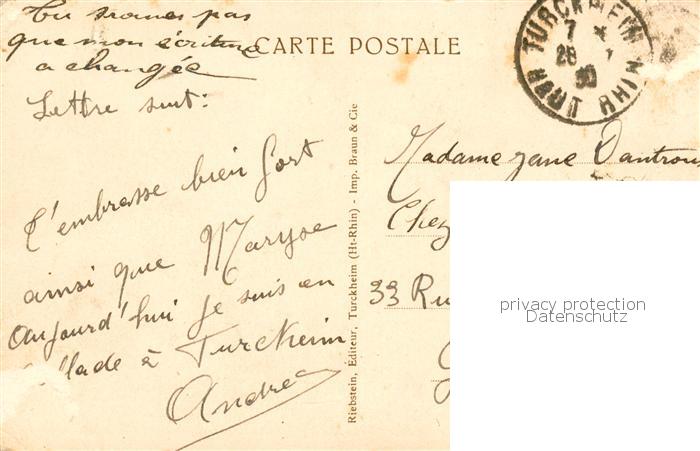 Tu trouves pas
que mon écriture
a changée
CARTE POSTALE
Lettre suit:
T'embrasse bien fort
ainsi que Maryse
Aujourd'hui je suis en
à Turckheim
André
Riebstein, Editeur, Turckheim (Ht-Rhin) - Imp. Braun & Cie
TURCKHEIM
7
28
30
HAUT RHIN
Madame Jane
Chez
33 Ru
privacy protection
Datenschutz